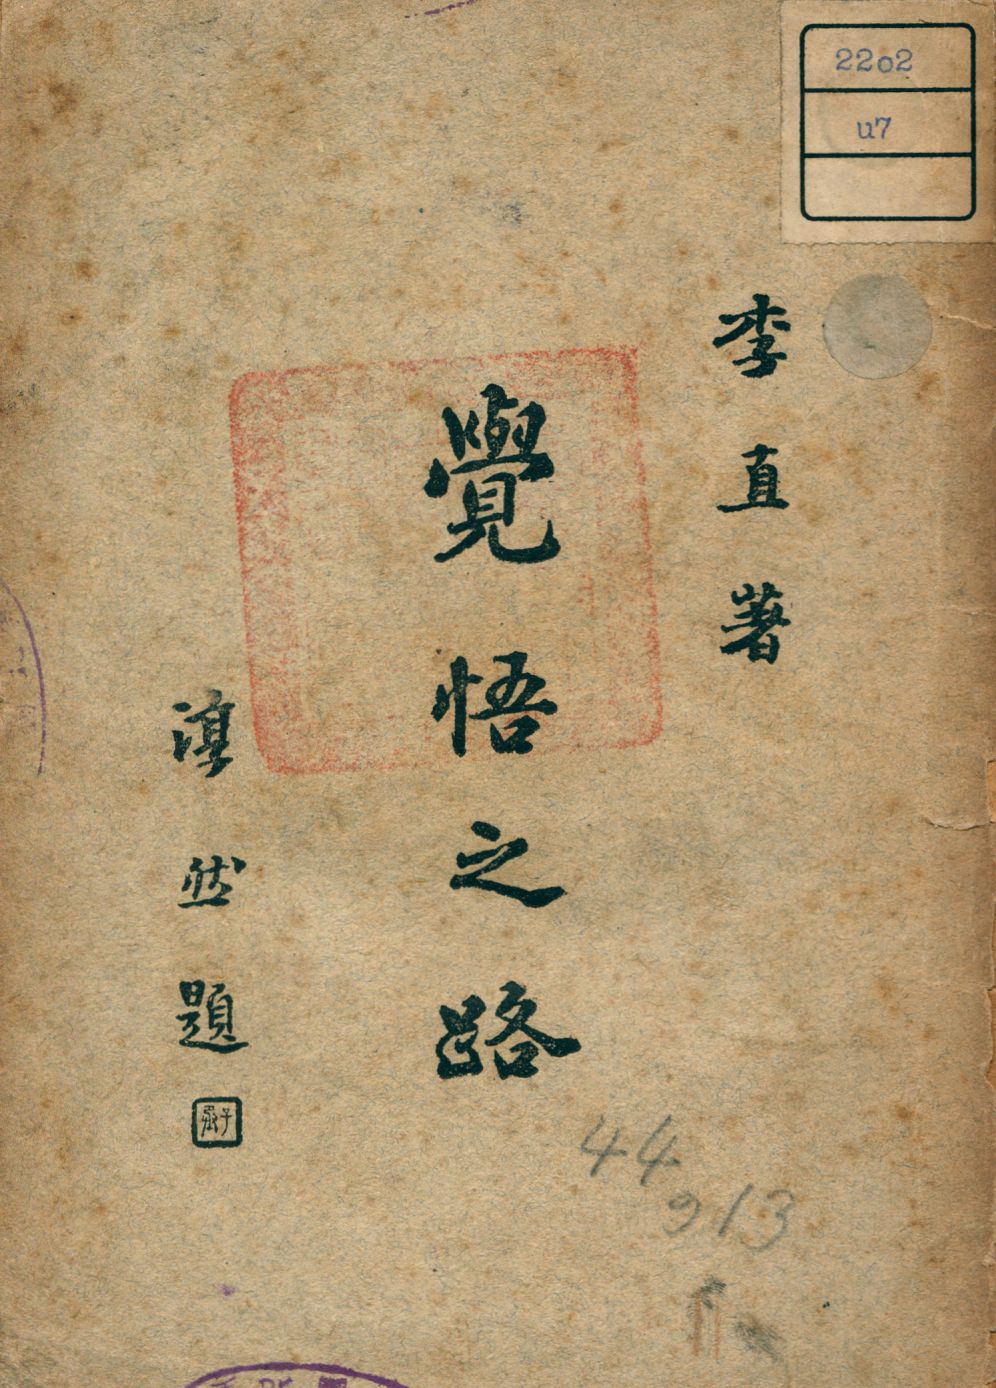 2202
u7
李直著
覺悟之路
淳然題
44
913